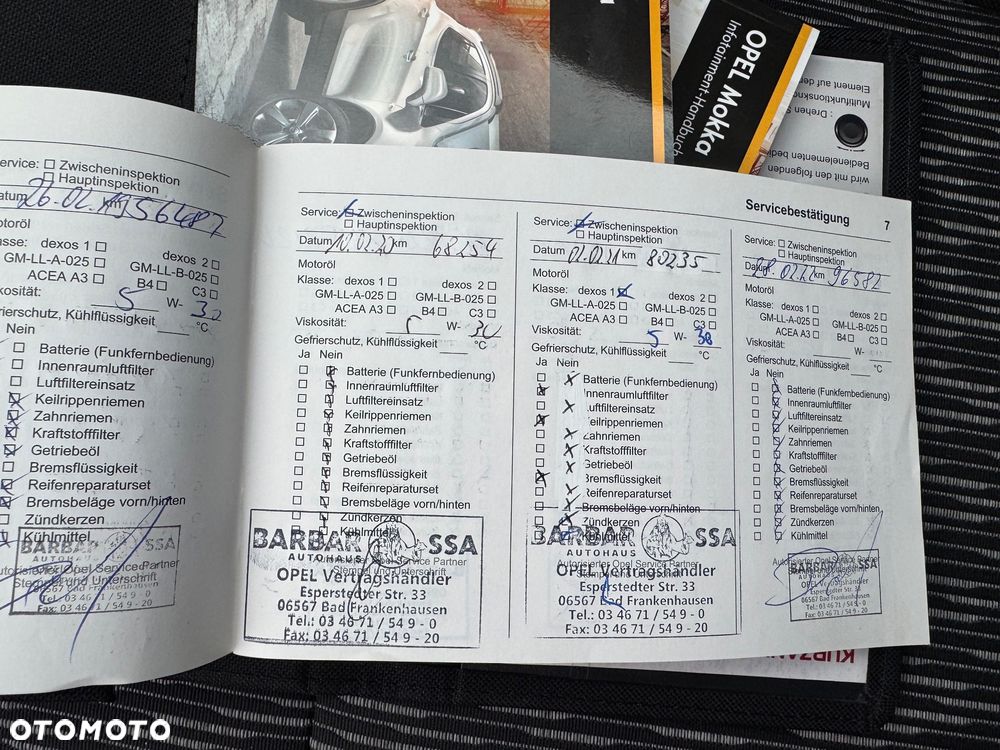 OPEL Mokka
Infotainment-Handbuch
: Drehen S
Multifunktionskno
Element auf den
wird mit den folgenden
Bedienelementen bedi
Servicebestätigung 7
ervice: Zwischeninspektion
Hauptinspektion
atum 26.02.19 km 56487
otoröl
lasse: dexos 1 dexos 2
GM-LL-A-025 GM-LL-B-025
ACEA A3 B4 C3
kosität: 5 W- 30
frierschutz, Kühlflüssigkeit °C
Nein
Batterie (Funkfernbedienung)
Innenraumluftfilter
Luftfiltereinsatz
Keilrippenriemen
Zahnriemen
Kraftstofffilter
Getriebeöl
Bremsflüssigkeit
Reifenreparaturset
Bremsbeläge vorn/hinten
Zündkerzen
Kühlmittel
BARBAR SSA
AUTOHAUS
Autorisierter Opel Service Partner
Stempel und Unterschrift
06567 Bad Frankenhausen
Tel.: 03 46 71 / 54 9 - 0
Fax: 03 46 71 / 54 9 - 20
Service: Zwischeninspektion
Hauptinspektion
Datum 10.02.20 km 68254
Motoröl
Klasse: dexos 1 dexos 2
GM-LL-A-025 GM-LL-B-025
ACEA A3 B4 C3
Viskosität: 5 W- 30
Gefrierschutz, Kühlflüssigkeit °C
Ja Nein
Batterie (Funkfernbedienung)
Innenraumluftfilter
Luftfiltereinsatz
Keilrippenriemen
Zahnriemen
Kraftstofffilter
Getriebeöl
Bremsflüssigkeit
Reifenreparaturset
Bremsbeläge vorn/hinten
Zündkerzen
Kühlmittel
BARBAR SSA
AUTOHAUS
Autorisierter Opel Service Partner
Stempel und Unterschrift
OPEL Vertragshändler
Esperstedter Str. 33
06567 Bad Frankenhausen
Tel.: 03 46 71 / 54 9 - 0
Fax: 03 46 71 / 54 9 - 20
Service: Zwischeninspektion
Hauptinspektion
Datum 02.02.21 km 80235
Motoröl
Klasse: dexos 1 dexos 2
GM-LL-A-025 GM-LL-B-025
ACEA A3 B4 C3
Viskosität: 5 W- 30
Gefrierschutz, Kühlflüssigkeit °C
Ja Nein
Batterie (Funkfernbedienung)
Innenraumluftfilter
Luftfiltereinsatz
Keilrippenriemen
Zahnriemen
Kraftstofffilter
Getriebeöl
Bremsflüssigkeit
Reifenreparaturset
Bremsbeläge vorn/hinten
Zündkerzen
Kühlmittel
BARBAR SSA
AUTOHAUS
Autorisierter Opel Service Partner
Stempel und Unterschrift
OPEL Vertragshändler
Esperstedter Str. 33
06567 Bad Frankenhausen
Tel.: 03 46 71 / 54 9 - 0
Fax: 03 46 71 / 54 9 - 20
Service: Zwischeninspektion
Hauptinspektion
Datum 28.02.22 km 96582
Motoröl
Klasse: dexos 1 dexos 2
GM-LL-A-025 GM-LL-B-025
ACEA A3 B4 C3
Viskosität: W-
Gefrierschutz, Kühlflüssigkeit °C
Ja Nein
Batterie (Funkfernbedienung)
Innenraumluftfilter
Luftfiltereinsatz
Keilrippenriemen
Zahnriemen
Kraftstofffilter
Getriebeöl
Bremsflüssigkeit
Reifenreparaturset
Bremsbeläge vorn/hinten
Zündkerzen
Kühlmittel
Autorisierter Opel Service Partner
BARBAR SSA
06567 Bad Frankenhausen
Tel.: 03 46 71 / 54 9 - 0
Fax: 03 46 71 / 54 9 - 20
OTOMOTO